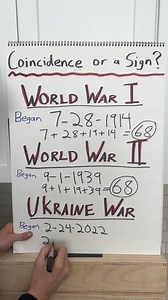 Coincidence or a Sign?
WORLD WAR I
Began 7-28-1914
7+28+19+14 = 68
WORLD WAR II
Began 9-1-1939
9+1+19+39 = 68
UKRAINE WAR
Began 2-24-2022
2